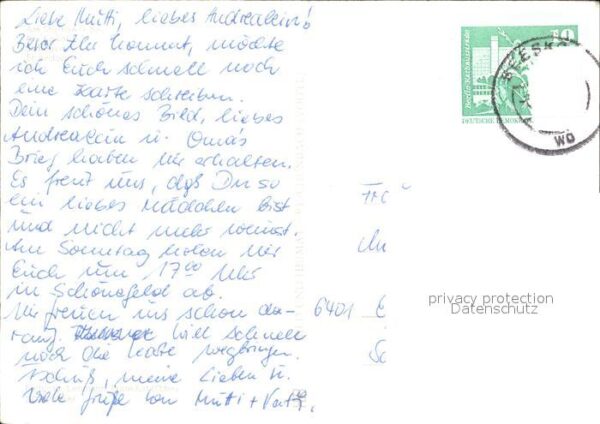 Liebe Mutti, liebes Andrealein!
Bevor Ihr kommt, möchte
ich Euch schnell noch
eine Karte schreiben.
Dein schönes Bild, liebes
Andrealein u. Omas
Brief haben wir erhalten.
Es freut uns, daß Du so
ein liebes Mädchen bist
und nicht mehr weinst.
Am Sonntag holen wir
Euch um 17⁰⁰ Uhr
in Schönefeld ab.
Wir freuen uns schon da-
rauf. will schnell
noch die Karte wegbringen.
Tschüß, meine Lieben u.
viele Grüße von Mutti + Vati.
10
Berlin, Rathausstraße
DEUTSCHE DEMOK
BEESK
WO
6401
privacy protection
Datenschutz